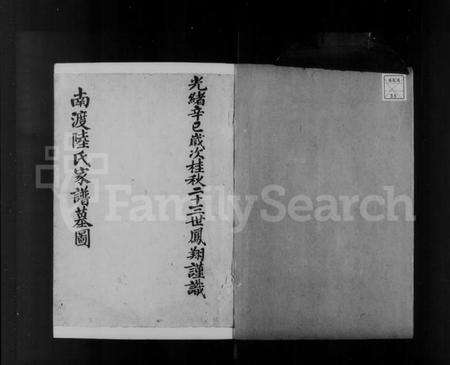 光緒辛巳歲次桂秋二十三世鳳翔謹識
南渡陸氏家譜墓圖
FamilySearch